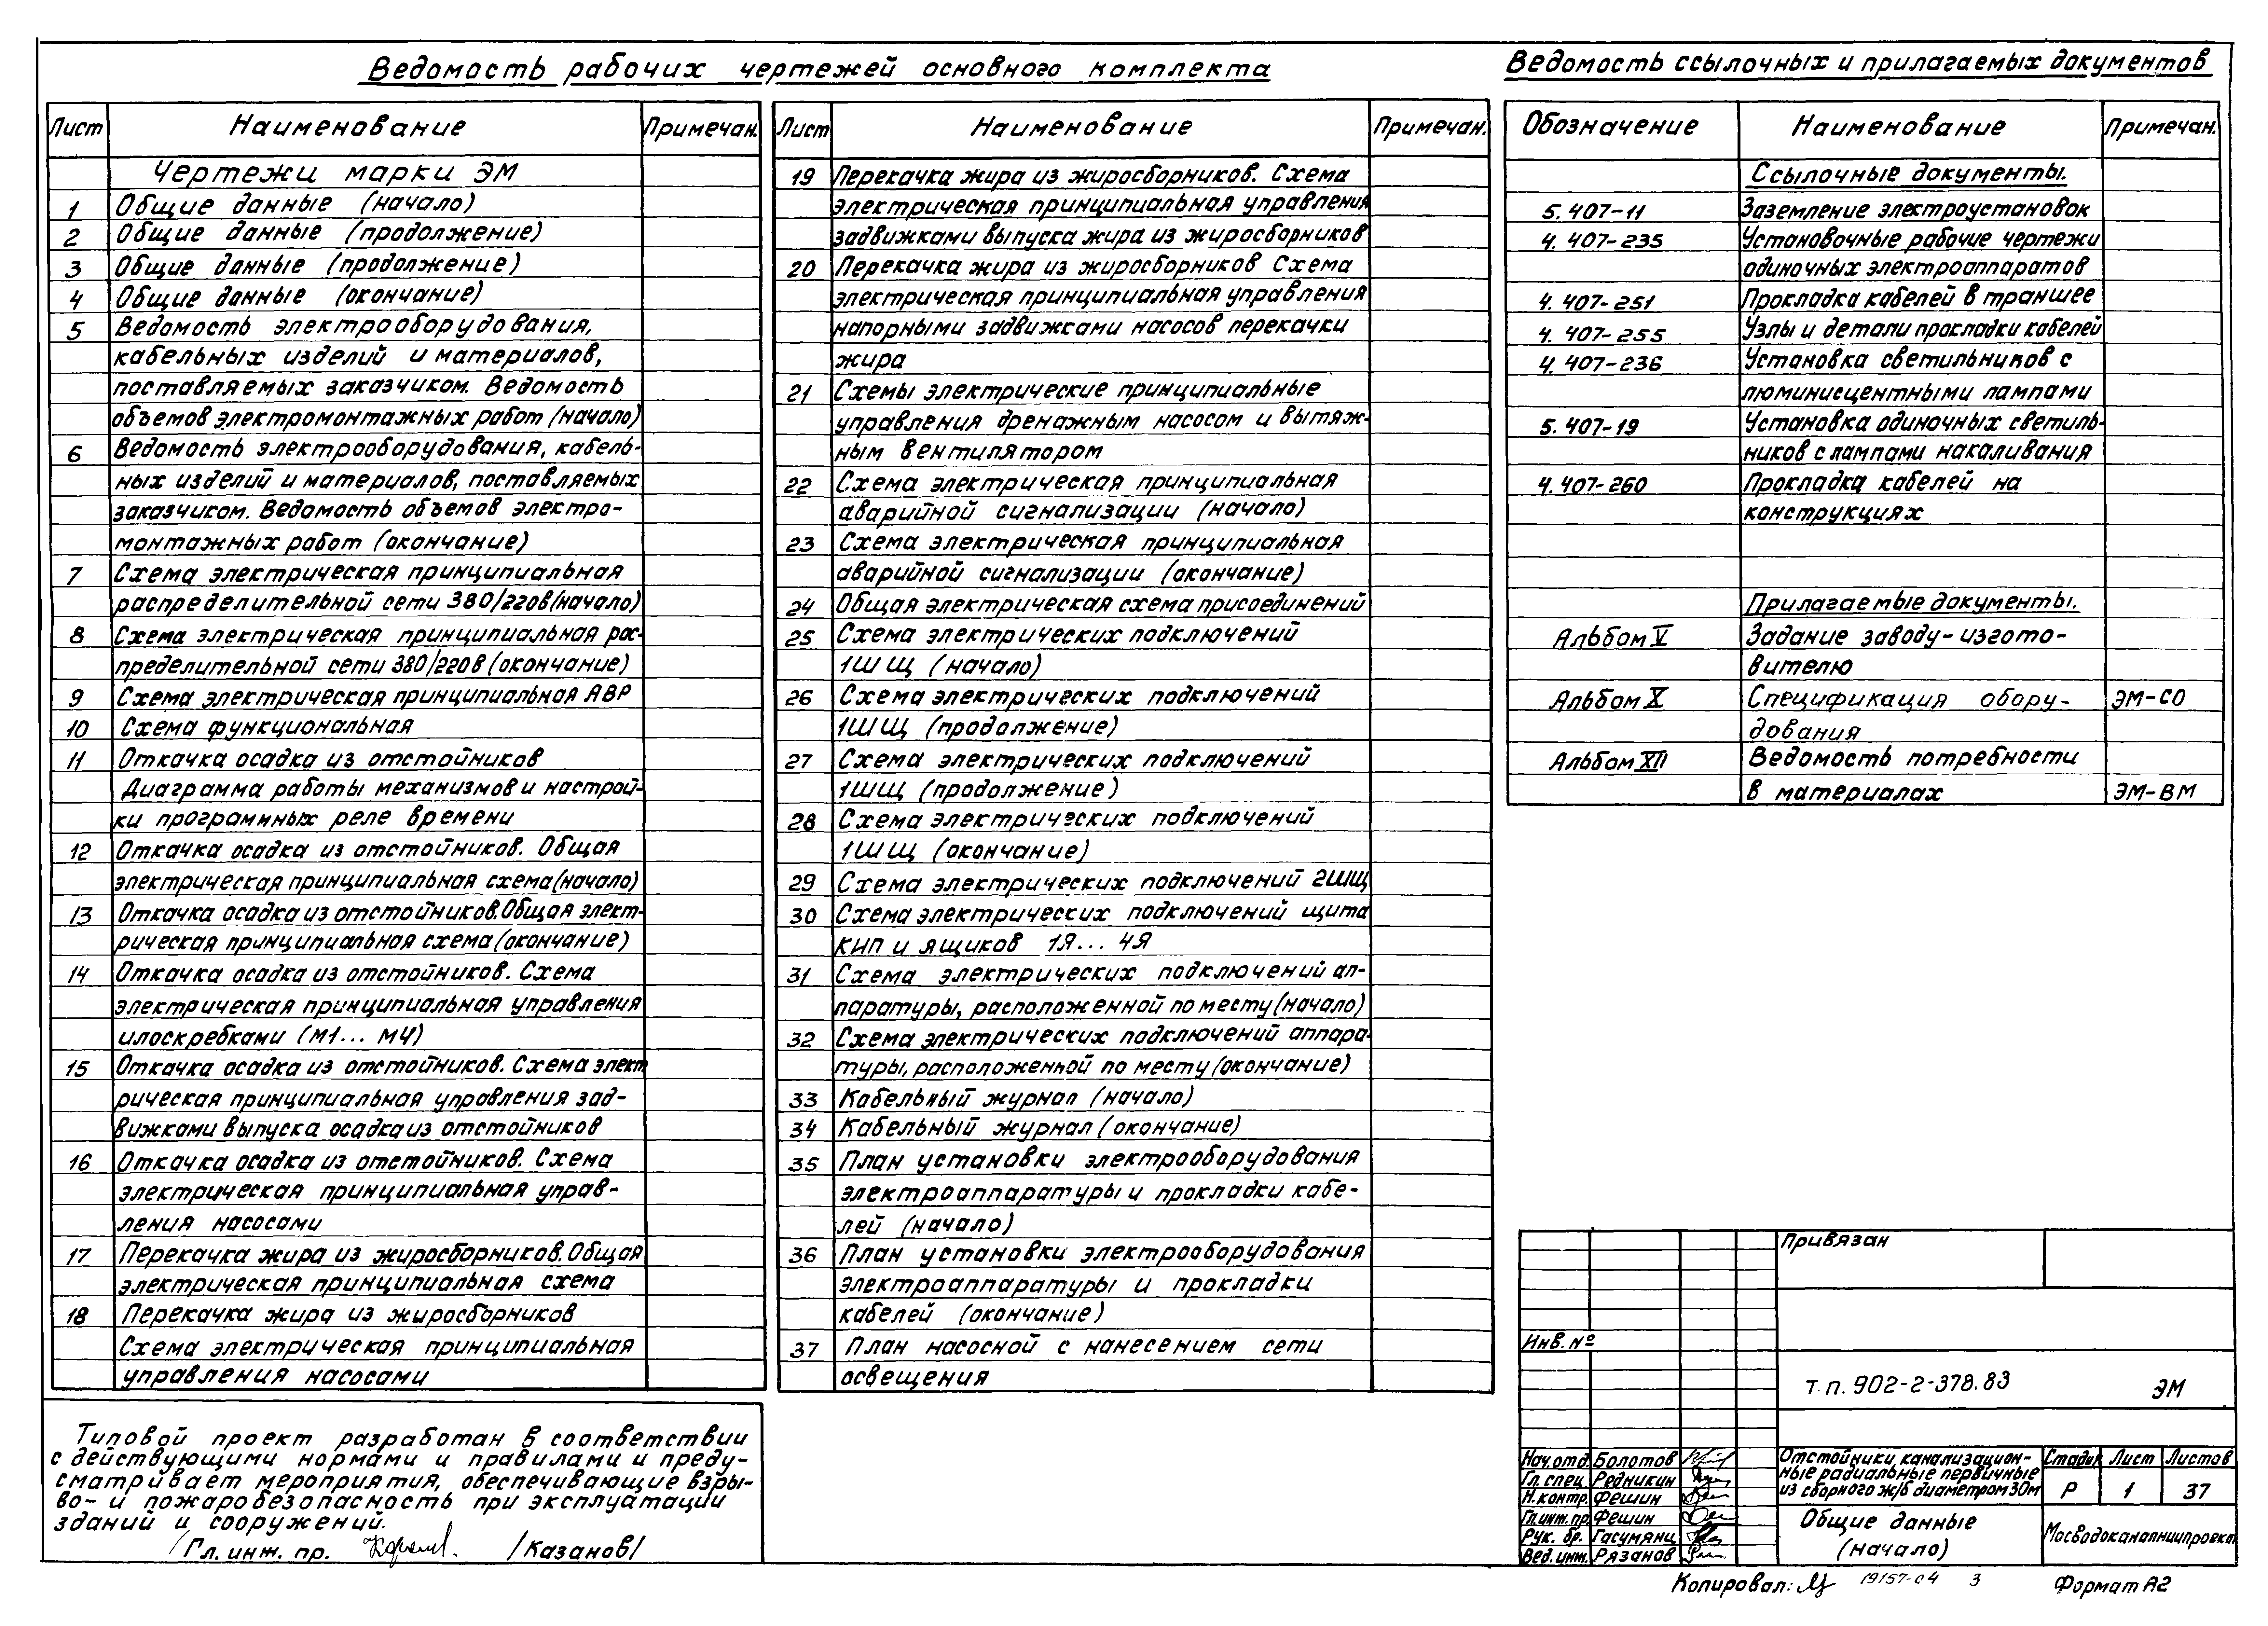 Ведомость рабочих чертежей основного комплекта
Лист Наименование Примечан.
Чертежи марки ЭМ
1 Общие данные (начало)
2 Общие данные (продолжение)
3 Общие данные (продолжение)
4 Общие данные (окончание)
5 Ведомость электрооборудования,
кабельных изделий и материалов,
поставляемых заказчиком. Ведомость
объемов электромонтажных работ (начало)
6 Ведомость электрооборудования, кабель-
ных изделий и материалов, поставляемых
заказчиком. Ведомость объемов электро-
монтажных работ (окончание)
7 Схема электрическая принципиальная
распределительной сети 380/220в (начало)
8 Схема электрическая принципиальная рас-
пределительной сети 380/220в (окончание)
9 Схема электрическая принципиальная АВР
10 Схема функциональная
11 Откачка осадка из отстойников
Диаграмма работы механизмов и настрой-
ки програмных реле времени
12 Откачка осадка из отстойников. Общая
электрическая принципиальная схема (начало)
13 Откачка осадка из отстойников. Общая элект-
рическая принципиальная схема (окончание)
14 Откачка осадка из отстойников. Схема
электрическая принципиальная управления
илоскребками (М1... М4)
15 Откачка осадка из отстойников. Схема элект
рическая принципиальная управления зад-
вижками выпуска осадка из отстойников
16 Откачка осадка из отстойников. Схема
электрическая принципиальная управ-
ления насосами
17 Перекачка жира из жиросборников. Общая
электрическая принципиальная схема
18 Перекачка жира из жиросборников
Схема электрическая принципиальная
управления насосами
Лист Наименование Примечан.
19 Перекачка жира из жиросборников. Схема
электрическая принципиальная управления
задвижками выпуска жира из жиросборников
20 Перекачка жира из жиросборников Схема
электрическая принципиальная управления
напорными задвижками насосов перекачки
жира
21 Схемы электрические принципиальные
управления дренажным насосом и вытяж-
ным вентилятором
22 Схема электрическая принципиальная
аварийной сигнализации (начало)
23 Схема электрическая принципиальная
аварийной сигнализации (окончание)
24 Общая электрическая схема присоединений
25 Схема электрических подключений
1ШЩ (начало)
26 Схема электрических подключений
1ШЩ (продолжение)
27 Схема электрических подключений
1ШЩ (продолжение)
28 Схема электрических подключений
1ШЩ (окончание)
29 Схема электрических подключений 2ШЩ
30 Схема электрических подключений щита
КИП и ящиков 1Я... 4Я
31 Схема электрических подключений ап-
паратуры, расположенной по месту (начало)
32 Схема электрических подключений аппара-
туры, расположенной по месту (окончание)
33 Кабельный журнал (начало)
34 Кабельный журнал (окончание)
35 План установки электрооборудования
электроаппаратуры и прокладки кабе-
лей (начало)
36 План установки электрооборудования
электроаппаратуры и прокладки
кабелей (окончание)
37 План насосной с нанесением сети
освещения
Ведомость ссылочных и прилагаемых документов
Обозначение Наименование Примечан.
Ссылочные документы.
5.407-11 Заземление электроустановок
4.407-235 Установочные рабочие чертежи
одиночных электроаппаратов
4.407-251 Прокладка кабелей в траншее
4.407-255 Узлы и детали прокладки кабелей
4.407-236 Установка светильников с
люминисцентными лампами
5.407-19 Установка одиночных светиль-
ников с лампами накаливания
4.407-260 Прокладка кабелей на
конструкциях
Прилагаемые документы.
Альбом V Задание заводу-изгото-
вителю
Альбом X Спецификация обору- ЭМ-СО
дования
Альбом XII Ведомость потребности
в материалах ЭМ-ВМ
Типовой проект разработан в соответствии
с действующими нормами и правилами и преду-
сматривает мероприятия, обеспечивающие взры-
во- и пожаробезопасность при эксплуатации
зданий и сооружений.
Гл. инж. пр. /Казанов/
Привязан
Инв. №
т.п. 902-2-378.83 ЭМ
Нач.отд. Болотов
Гл. спец. Редникин
Н.контр. Фешин
Гл.инж.пр. Фешин
Рук. бр. Гасумянц
Вед. инж. Рязанов
Отстойники канализацион-
ные радиальные первичные
из сборного ж/б диаметром 30м
Стадия Лист Листов
Р 1 37
Общие данные
(начало)
Мосводоканалниипроект
Копировал: 19157-04 3 Формат А2